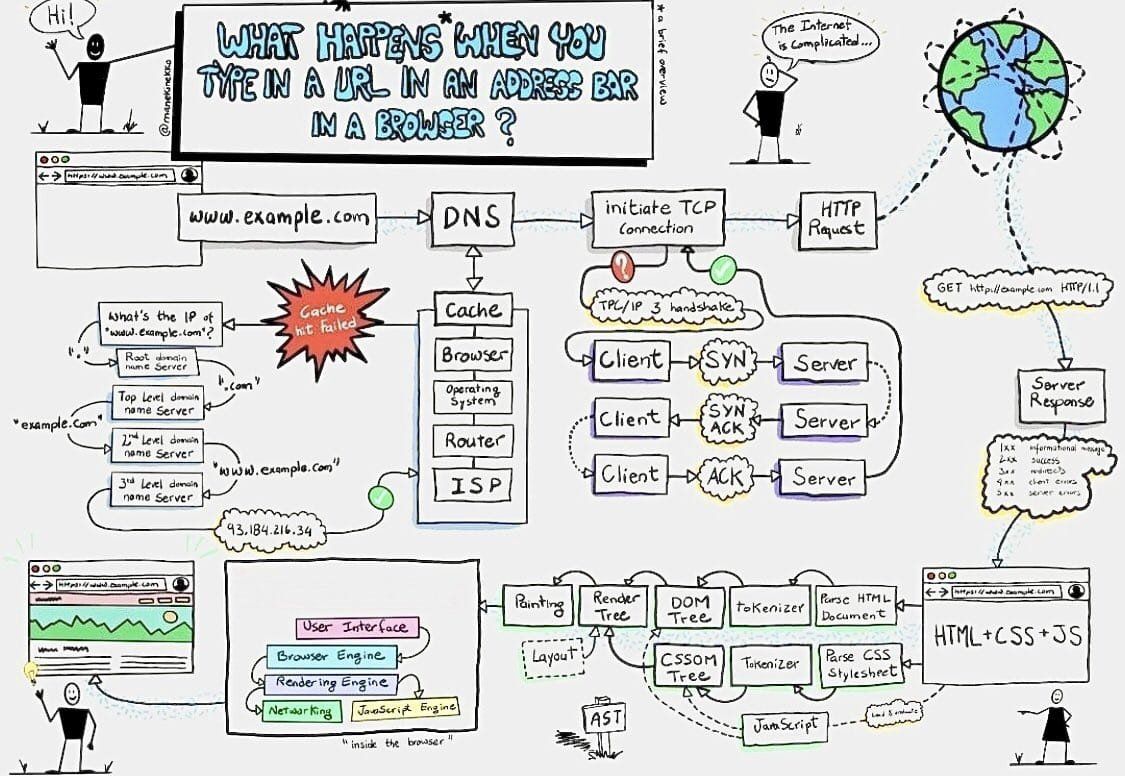 Hi!
@manekinekko
WHAT HAPPENS* WHEN YOU
TYPE IN A URL IN AN ADDRESS BAR
IN A BROWSER ?
* a brief overview
The Internet
is complicated...
https://www.example.com
www.example.com
DNS
initiate TCP
Connection
HTTP
Request
GET http://example.com HTTP/1.1
Server
Response
1xx informational message
2xx success
3xx redirects
4xx client errors
5xx server errors
Cache
hit Failed
What's the IP of
"www.example.com"?
"."
Root domain
name Server
".com"
Top Level domain
name Server
"example.com"
2nd Level domain
name Server
"www.example.com"
3rd Level domain
name Server
93.184.216.34
Cache
Browser
Operating
System
Router
ISP
?
TPC/IP 3 handshake
Client
SYN
Server
Client
SYN
ACK
Server
Client
ACK
Server
https://www.example.com
HTML+CSS+JS
Parse HTML
Document
Tokenizer
DOM
Tree
Render
Tree
Painting
Layout
Parse CSS
Stylesheet
Tokenizer
CSSOM
Tree
JavaScript
AST
User Interface
Browser Engine
Rendering Engine
Networking
JavaScript Engine
"inside the browser"
https://www.example.com